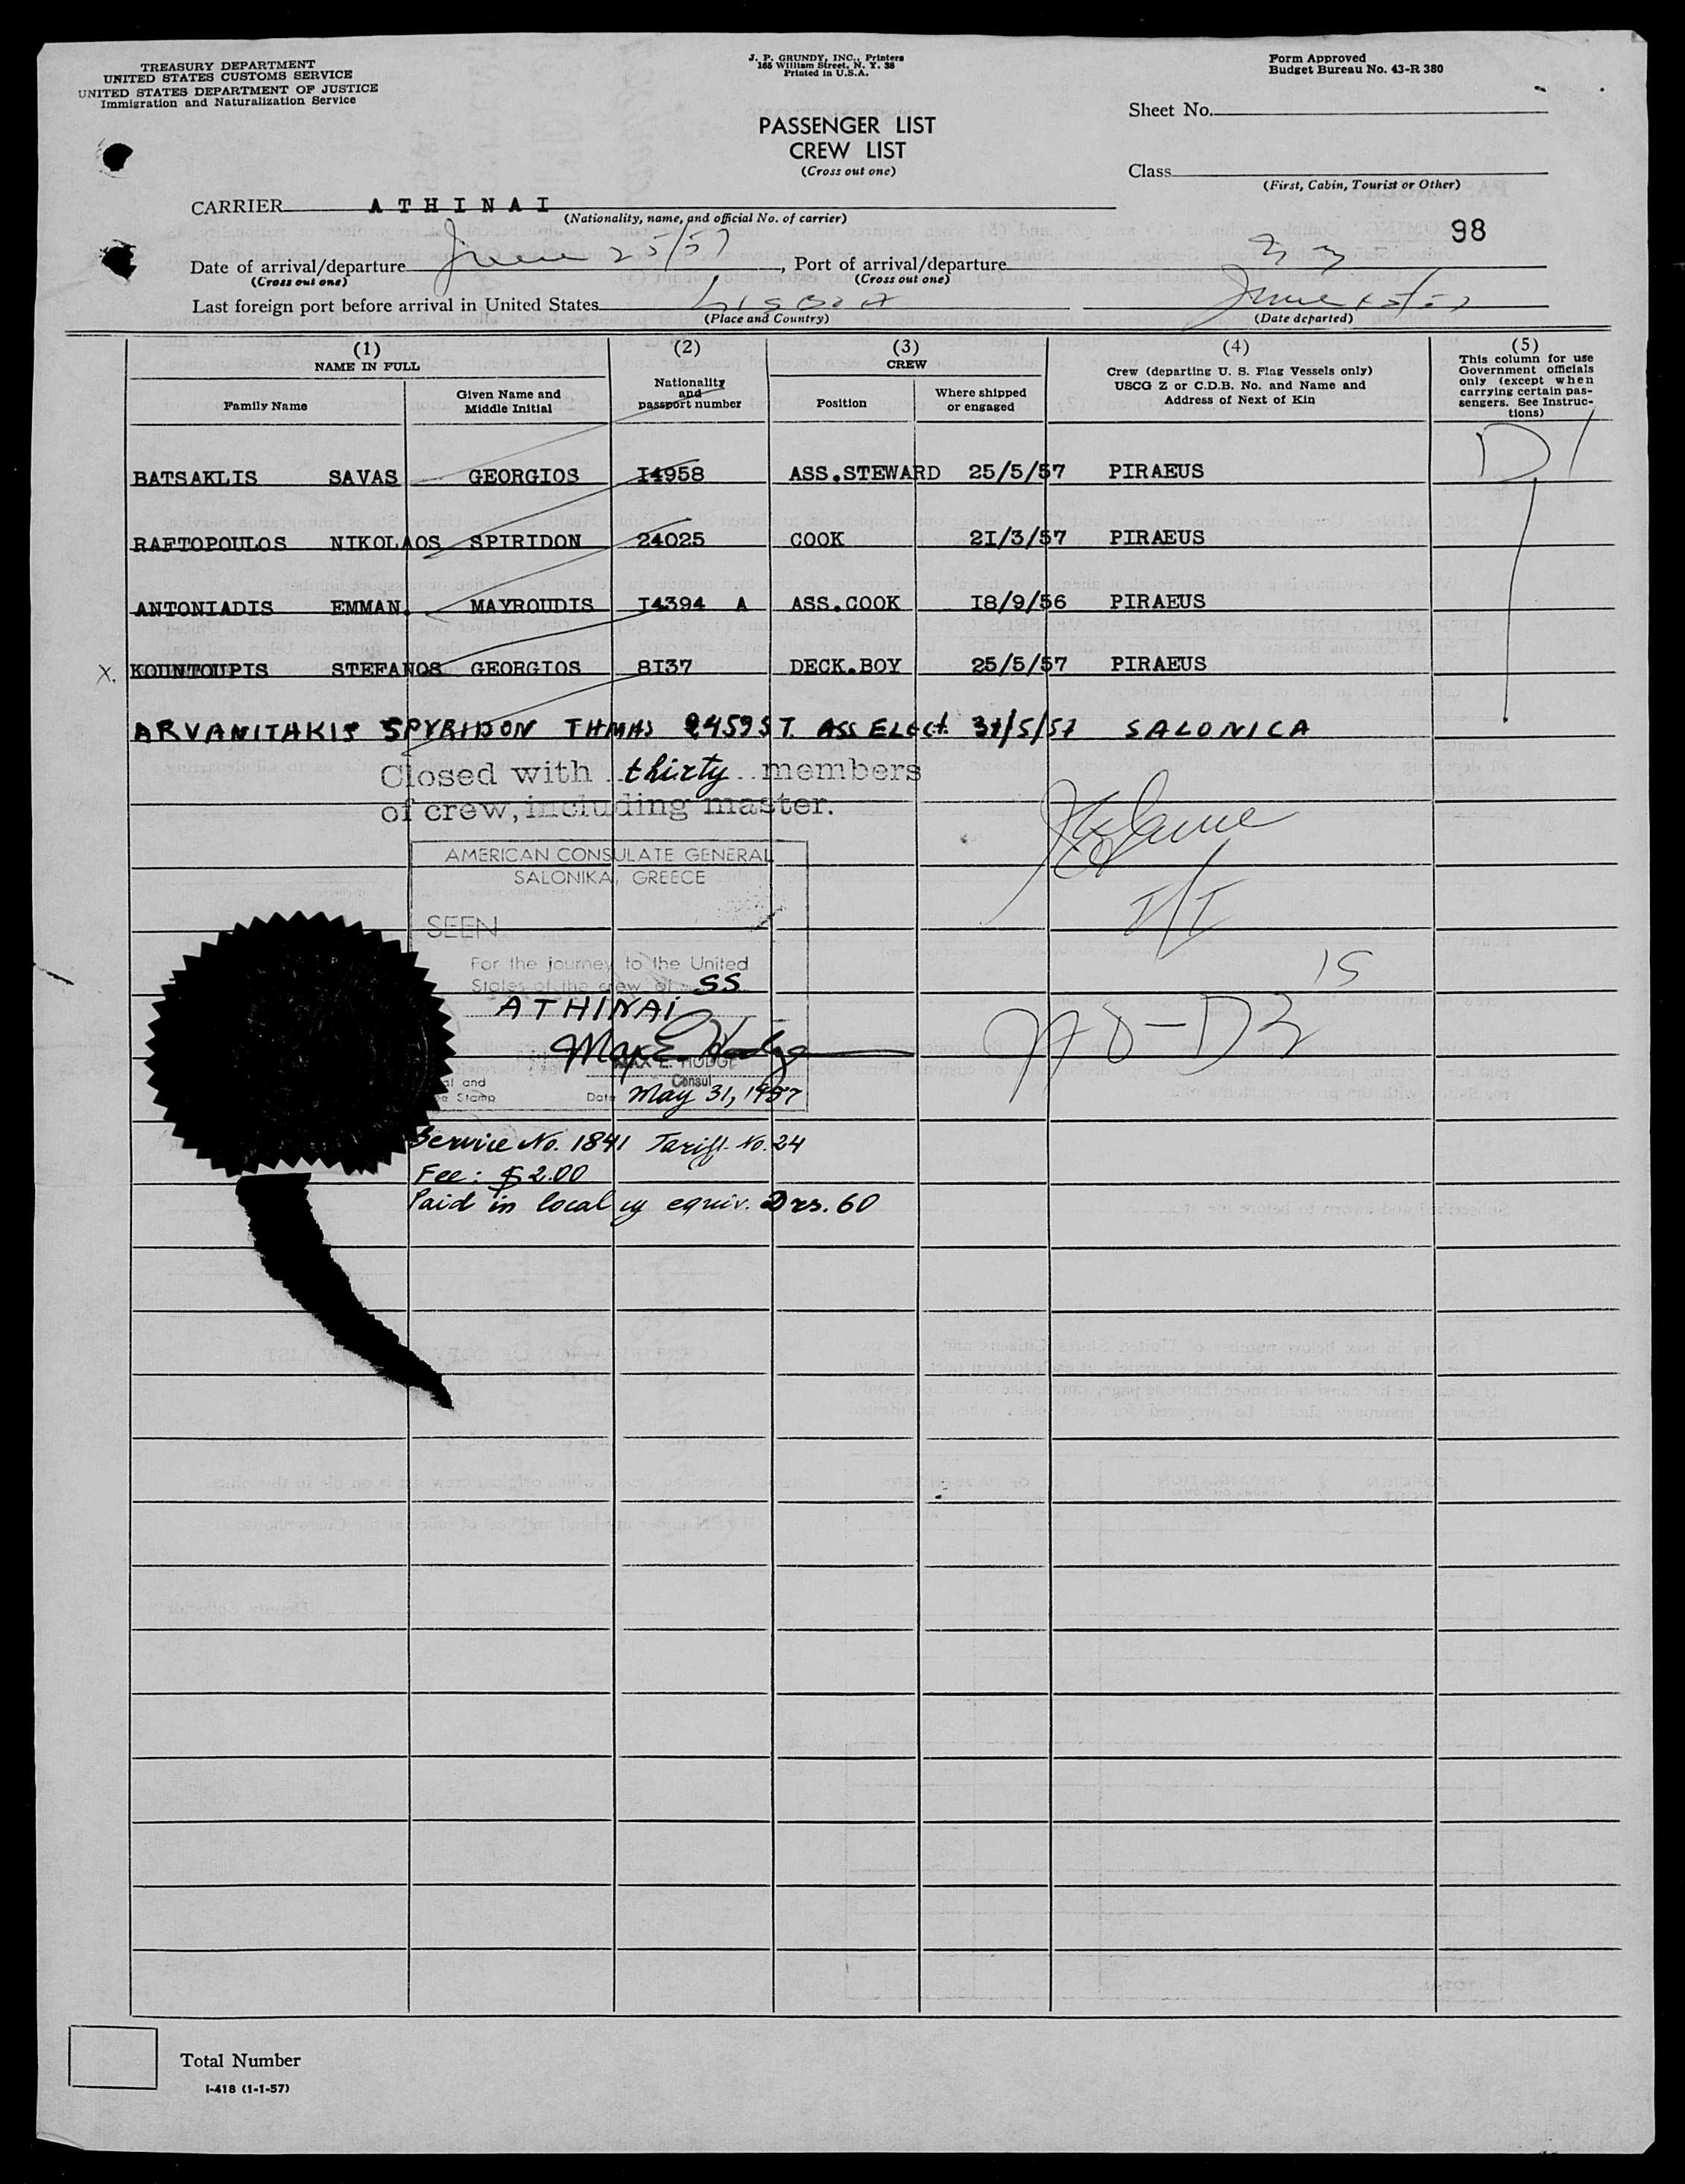 TREASURY DEPARTMENT
UNITED STATES CUSTOMS SERVICE
UNITED STATES DEPARTMENT OF JUSTICE
Immigration and Naturalization Service
J. P. GRUNDY, INC., Printers
165 William Street, N. Y. 38
Printed in U.S.A.
Form Approved
Budget Bureau No. 43-R 380
Sheet No.
PASSENGER LIST
CREW LIST
(Cross out one)
Class
(First, Cabin, Tourist or Other)
CARRIER ATHINAI
(Nationality, name, and official No. of carrier)
98
Date of arrival/departure June 25/57, Port of arrival/departure
(Cross out one) (Cross out one)
Last foreign port before arrival in United States June
(Place and Country) (Date departed)
(1) (2) (3) (4) (5)
NAME IN FULL
Family Name
Given Name and Middle Initial
Nationality and passport number
CREW
Position
Where shipped or engaged
Crew (departing U. S. Flag Vessels only)
USCG Z or C.D.B. No. and Name and
Address of Next of Kin
This column for use
Government officials
only (except when
carrying certain pas-
sengers. See Instruc-
tions)
BATSAKLIS SAVAS GEORGIOS I4958 ASS.STEWARD 25/5/57 PIRAEUS D1
RAFTOPOULOS NIKOLAOS SPIRIDON 24025 COOK 2I/3/57 PIRAEUS
ANTONIADIS EMMAN. MAYROUDIS I4394 A ASS.COOK I8/9/56 PIRAEUS
X. KOUNTOUPIS STEFANOS GEORGIOS 8I37 DECK.BOY 25/5/57 PIRAEUS
ARVANITAKIS SPYRIDON THMAS ASS ELECt. 31/5/57 SALONICA
Closed with thirty members
of crew, including master.
AMERICAN CONSULATE GENERAL
SALONIKA, GREECE
SEEN
For the journey to the United
States of the crew of SS
ATHINAI
15
MAX E. HODGE
Consul
Date May 31, 1957
Service No. 1841 Tariff No. 24
Fee: $2.00
Paid in local cy equiv. Drs. 60
Total Number
I-418 (1-1-57)